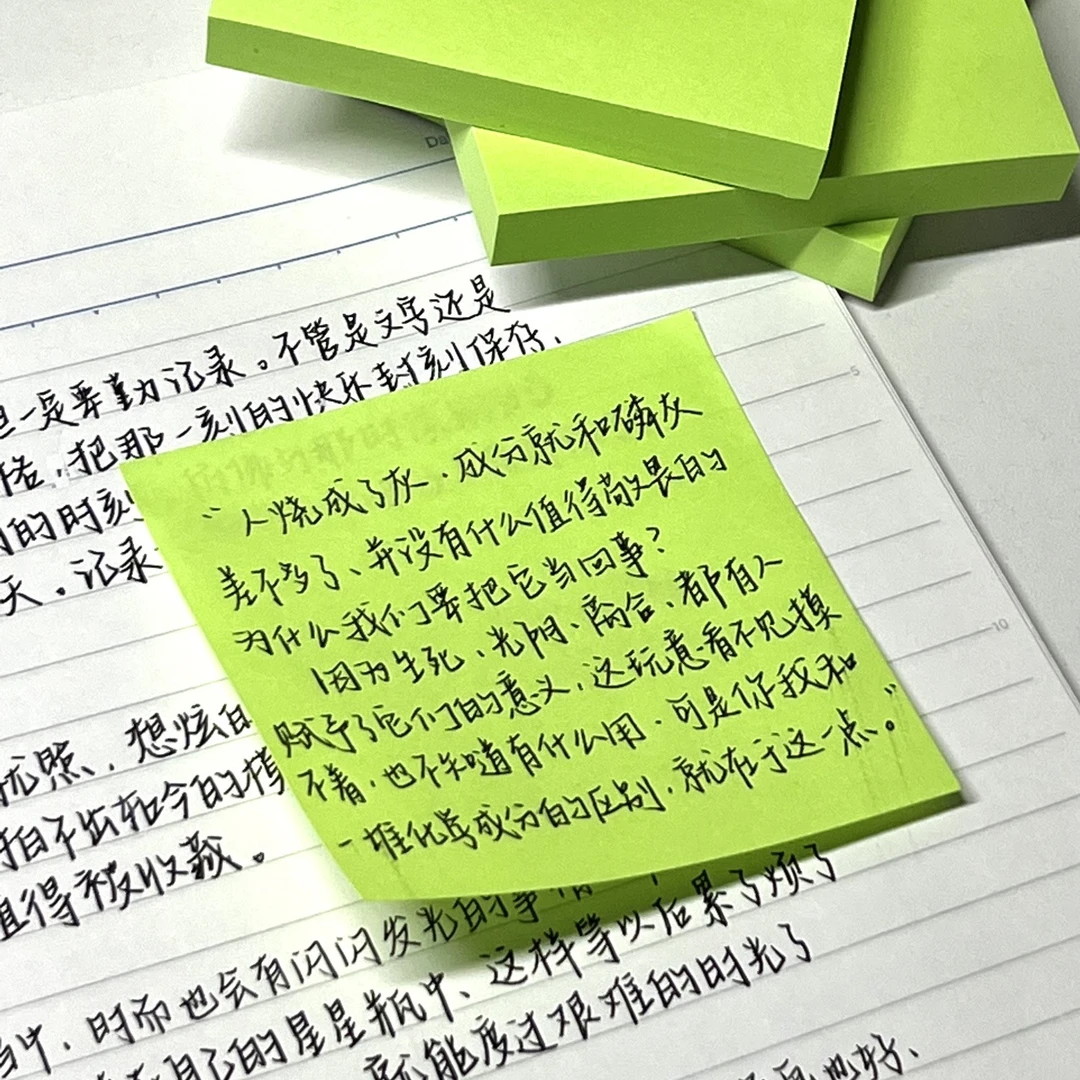 Da
旦一定要勤记录。不管是文字还是
把那一刻的快乐封刻保存,
的时刻
天。记录
5
“人烧成了灰,成分就和磷灰
差不多了、并没有什么值得敬畏的
为什么我们要把它当回事?
因为生死、光阴、离合、都有人
赋予了它们的意义,这玩意看不见摸
不着,也不知道有什么用,可是你我和
一堆化学成分的区别,就在于这一点。”
10
忧照,想炫
拍不出如今的模
值得被收藏。
闪闪发光的事情
当中,时而也会有
自己的星星瓶中、这样等以后累了烦了
就能度过艰难的时光了
也好、